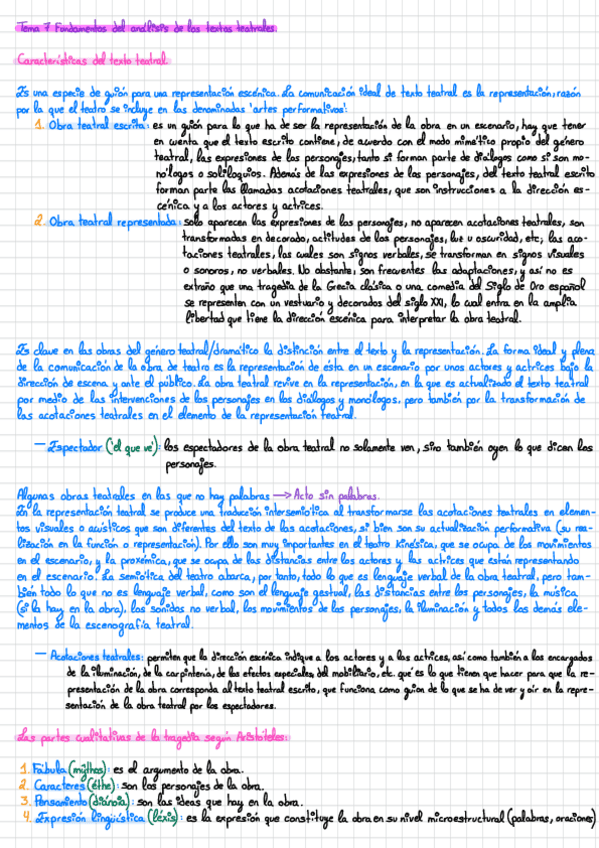 Tema 7 Fundamentos del análisis de los textos teatrales.
Características del texto teatral.
Es una especie de guión para una representación escénica. La comunicación ideal de texto teatral es la representación, razón
por la que el teatro se incluye en las denominadas 'artes performativas'.
1. Obra teatral escrita: es un guión para lo que ha de ser la representación de la obra en un escenario, hay que tener
en cuenta que el texto escrito contiene, de acuerdo con el modo mimético propio del género
teatral, las expresiones de los personajes, tanto si forman parte de diálogos como si son mo-
nólogos o soliloquios. Además de las expresiones de los personajes, del texto teatral escrito
forman parte las llamadas acotaciones teatrales, que son instrucciones a la dirección es-
cénica y a los actores y actrices.
2. Obra teatral representada: solo aparecen las expresiones de los personajes, no aparecen acotaciones teatrales, son
transformadas en decorado, actitudes de los personajes, luz u oscuridad, etc, las aco-
taciones teatrales, las cuales son signos verbales, se transforman en signos visuales
o sonoros, no verbales. No obstante, son frecuentes las adaptaciones, y así no es
extraño que una tragedia de la Grecia clásica o una comedia del Siglo de Oro español
se representen con un vestuario y decorados del siglo XXI, lo cual entra en la amplia
libertad que tiene la dirección escénica para interpretar la obra teatral.
Es clave en las obras del género teatral/dramático la distinción entre el texto y la representación. La forma ideal y plena
de la comunicación de la obra de teatro es la representación de ésta en un escenario por unos actores y actrices bajo la
dirección de escena y ante el público. La obra teatral revive en la representación, en la que es actualizado el texto teatral
por medio de las intervenciones de los personajes en los diálogos y monólogos, pero también por la transformación de
las acotaciones teatrales en el elemento de la representación teatral.
— Espectador ('el que ve'): los espectadores de la obra teatral no solamente ven, sino también oyen lo que dicen los
personajes.
Algunas obras teatrales en las que no hay palabras → Acto sin palabras.
En la representación teatral se produce una traducción intersemiótica al transformarse las acotaciones teatrales en elemen-
tos visuales o acústicos que son diferentes del texto de las acotaciones, si bien son su actualización performativa (su rea-
lización en la función o representación). Por ello son muy importantes en el teatro kinésica, que se ocupa de los movimientos
en el escenario, y la proxémica, que se ocupa de las distancias entre los actores y las actrices que están representando
en el escenario. La semiótica del teatro abarca, por tanto, todo lo que es lenguaje verbal de la obra teatral, pero tam-
bién todo lo que no es lenguaje verbal, como son el lenguaje gestual, las distancias entre los personajes, la música
(si la hay en la obra), los sonidos no verbal, los movimientos de los personajes, la iluminación y todos los demás ele-
mentos de la escenografía teatral.
— Acotaciones teatrales: permiten que la dirección escénica indique a los actores y a las actrices, así como también a los encargados
de la iluminación, de la carpintería, de los efectos especiales, del mobiliario, etc. qué es lo que tienen que hacer para que la re-
presentación de la obra corresponda al texto teatral escrito, que funciona como guion de lo que se ha de ver y oír en la repre-
sentación de la obra teatral por los espectadores.
Las partes cualitativas de la tragedia según Aristóteles:
1. Fábula (mýthos): es el argumento de la obra.
2. Caracteres (éthe): son los personajes de la obra.
3. Pensamiento (diánoia): son las ideas que hay en la obra.
4. Expresión lingüística (léxis): es la expresión que constituye la obra en su nivel microestructural (palabras, oraciones)